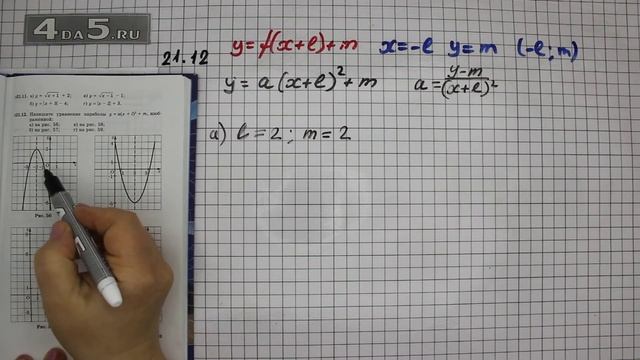 4DA5.RU
21.12 y=f(x+l)+m x=-l y=m (-l;m)
y=a(x+l)²+m a=y-m/(x+l)²
а) l=2; m=2
21.11. а) y = √x+1 + 2; в) y = √x-1 - 1;
21.12. Напишите уравнение параболы y = a(x + l)² + m, изображенной:
а) на рис. 56; в) на рис. 58;
б) на рис. 57; г) на рис. 59.
Рис. 56